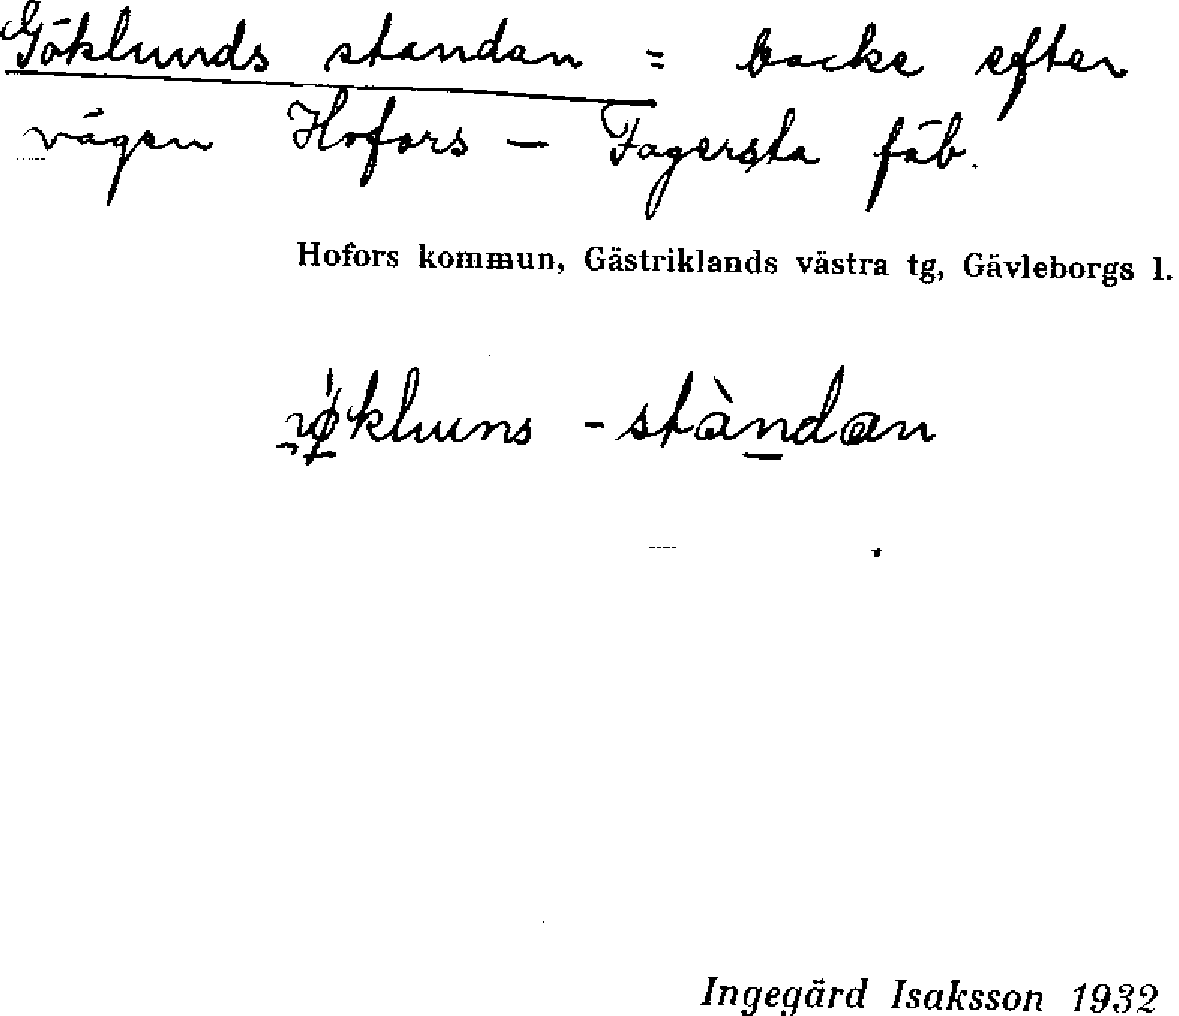 Göklunds standan = backe efter
vägen Hofors — Fagersta fäb.
Hofors kommun, Gästriklands västra tg, Gävleborgs l.
-stàndan
Ingegärd Isaksson 1932